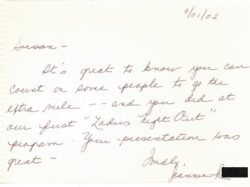 9/01/02
Susan -
It's great to know you can
count on some people to go the
extra mile -- and you did at
our first "Ladies Night Out"
program. Your presentation was
great -
Fondly,
Jeannie